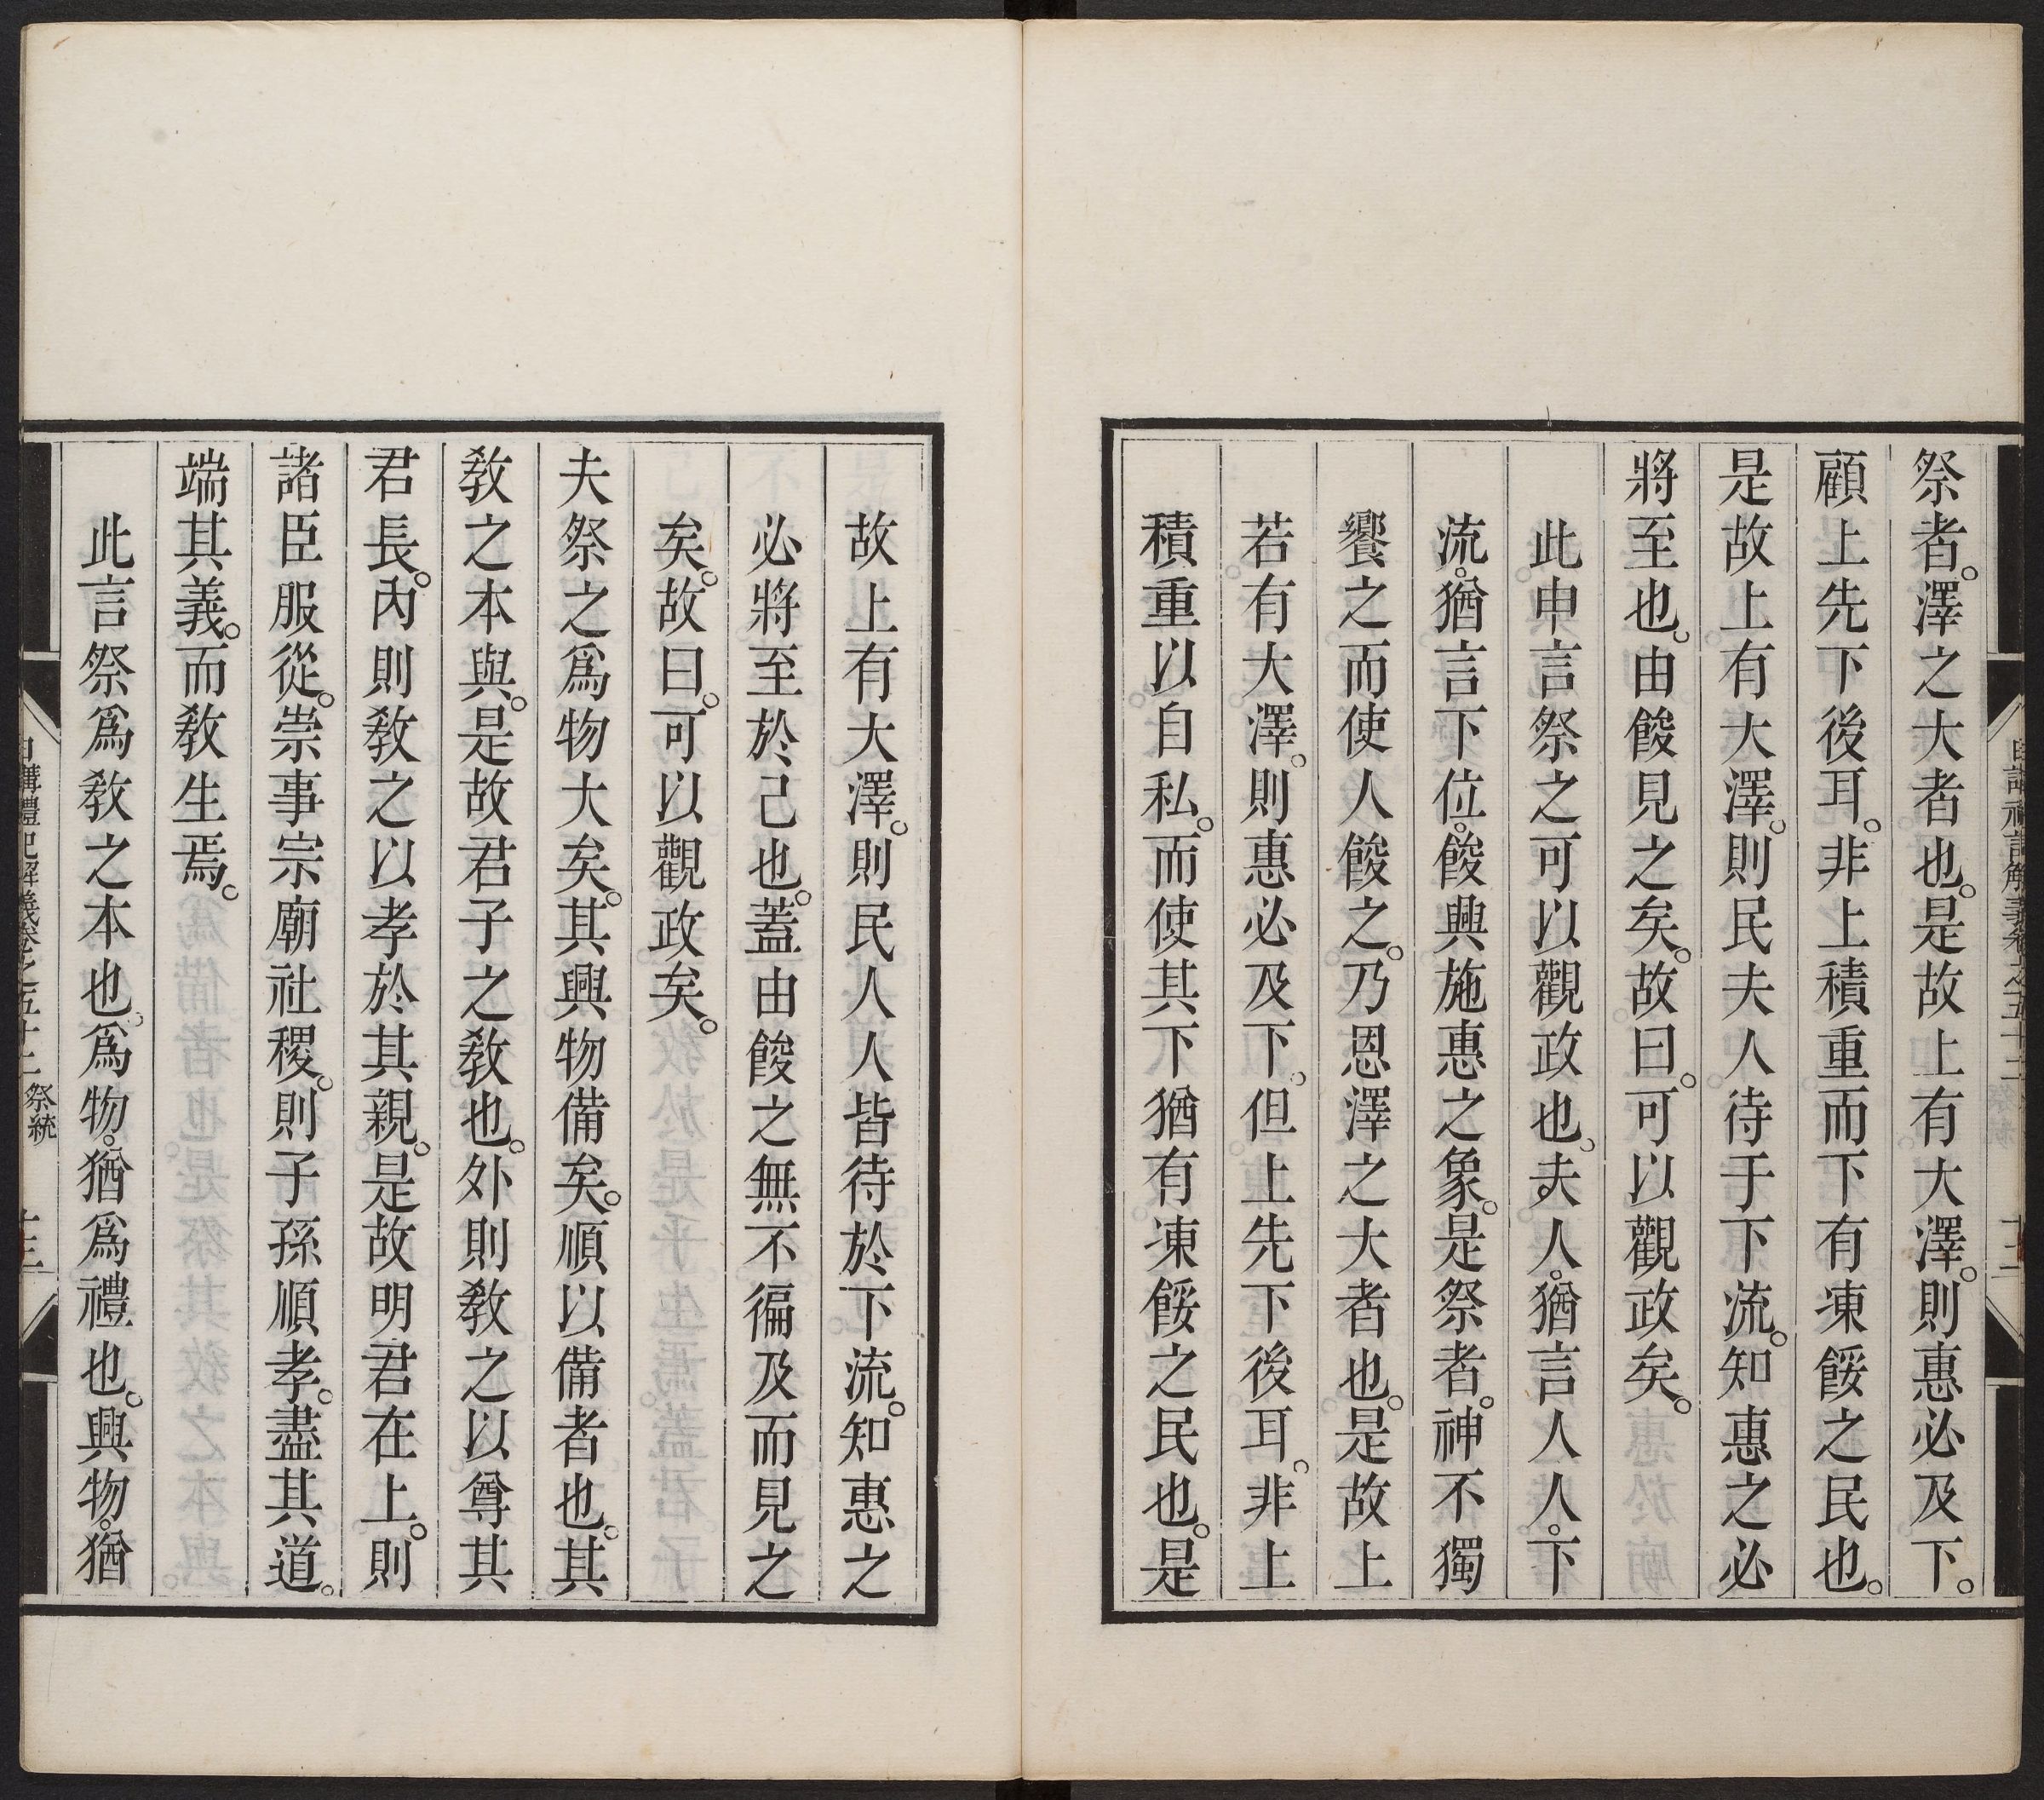 祭者。澤之大者也。是故上有大澤。則惠必及下。
顧上先下後耳。非上積重而下有凍餒之民也。
是故上有大澤。則民夫人待于下流。知惠之必
將至也。由餕見之矣。故曰。可以觀政矣。
此申言祭之可以觀政也。夫人。猶言人人。下
流。猶言下位。餕興施惠之象。是祭者。神不獨
饗之而使人餕之。乃恩澤之大者也。是故上
若有大澤。則惠必及下。但上先下後耳。非上
積重以自私。而使其下猶有凍餒之民也。是
故上有大澤。則民人人皆待於下流。知惠之
必將至於己也。蓋由餕之無不徧及而見之
矣。故曰。可以觀政矣。
夫祭之爲物大矣。其興物備矣。順以備者也。其
敎之本與。是故君子之敎也。外則敎之以尊其
君長。內則敎之以孝於其親。是故明君在上。則
諸臣服從。崇事宗廟社稷。則子孫順孝。盡其道。
端其義。而敎生焉。
此言祭爲敎之本也。爲物。猶爲禮也。興物。猶
日講禮記解義卷之五十二 祭統 十三